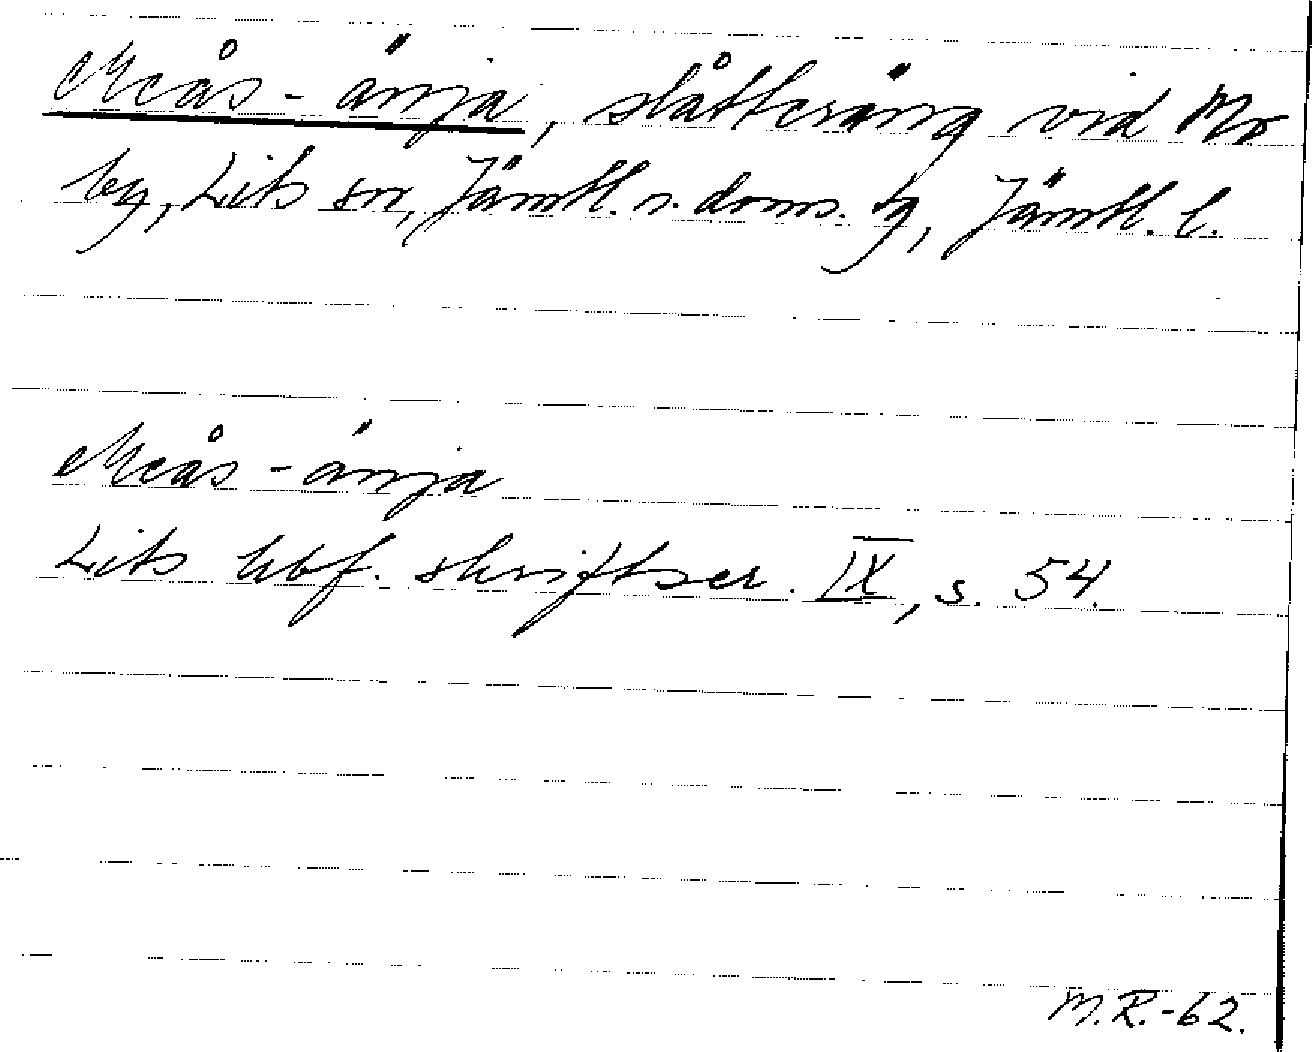 Meås-änja, slåtteräng vid Mo
by, Lits sn, Jämtl. n. doms. tg, Jämtl. l.
Meås-änja
Lits hbf. skriftser. IX, s. 54.
M.R.-62.